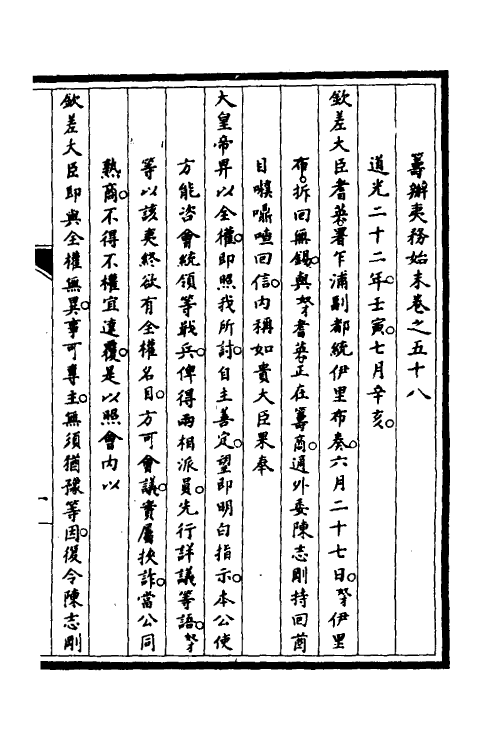 籌辦夷務始末卷之五十八
道光二十二年壬寅七月辛亥
欽差大臣耆英署乍浦副都統伊里布奏六月二十七日奴才伊里
布折回無錫與奴才耆英正在籌商適外委陳志剛持回𠸄
目噗㘄喳回信內稱如貴大臣果奉
大皇帝畀以全權即照我所討自主善定望即明白指示本公使
方能咨會統領等戢兵俾得兩相派員先行詳議等語奴才
等以該夷終欲有全權名目方可會議實屬挾詐當公同
熟商不得不權宜速覆是以照會內以
欽差大臣即與全權無異事可專主無須猶豫等因復令陳志剛
一